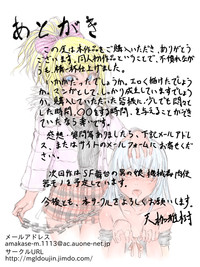 あとがき
この度は本作品をご購入いただき、ありがとう
ございます。同人初作品ということで、不慣れながら
も、精一杯仕上げました。
いかがだったでしょうか。エロく描けたでしょう
か。マンガとして、しっかり成立しているでしょう
か。購入していただいた皆様に、少しでも悶々と
した時間、〇〇をする時間、を与えることができ
ていたなら幸いです。
感想・質問等ありましたら、下記メールアドレ
ス、またはサイトのメールフォームにお寄せくださ
い。
次回作はSF舞台の男の娘、機械姦、肉便
器モノを予定しています。
今後とも、本サークルをよろしくお願いします。
メールアドレス
amakase-m.1113@ac.auone-net.jp
サークルURL
http://mgldoujin.jimdo.com/